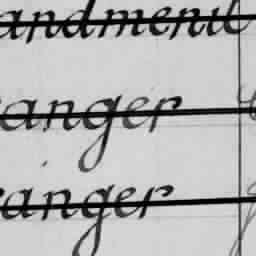 andment
anger
anger